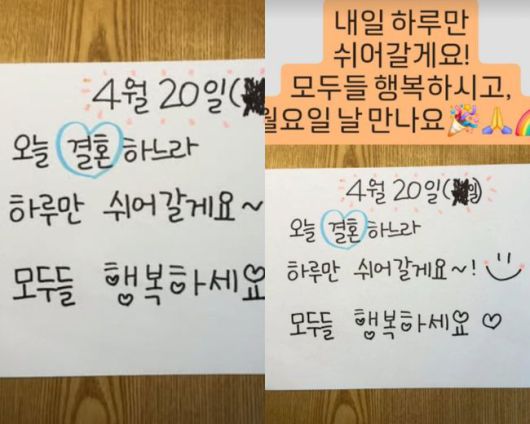 4월 20일(
오늘 결혼하느라
하루만 쉬어갈게요~
모두들 행복하세요
내일 하루만
쉬어갈게요!
모두들 행복하시고,
월요일 날 만나요🎉🙏🌈
4월 20일(일)
오늘 결혼하느라
하루만 쉬어갈게요~!
모두들 행복하세요♡